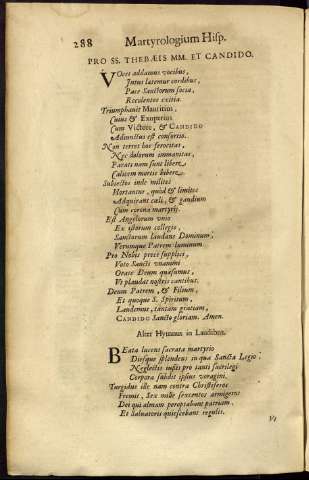 288 Martyrologium Hisp.
PRO SS. THEBÆIS MM. ET CANDIDO.
VOces addamus vocibus,
Intus lætemur cordibus,
Pace Sanctorum socia,
Recolentes exitia.
Triumphauit Mauritius,
Cuius & Exuperius
Cum Victore, & CANDIDO
Adiunctus est consortio.
Non terret hos ferocitas,
Nec dolorum immanitas,
Parati nam sunt libere
Calicem mortis bibere.
Subiectos inde milites
Hortantur, quòd & limites
Adquirant cæli, & gaudium
Cum corona martyrij.
Est Angelorum vnio
Ex istorum collegio,
Sanctorum laudans Dominum,
Verumque Patrem luminum
Pro Nobis prece supplici,
Voto Sancti vnanimi
Orate Deum quæsumus,
Vt plaudat nostris cantibus.
Deum Patrem, & Filium,
Et quoque S. Spiritum,
Laudemus, tantam gratiam,
CANDIDO Sancto gloriam. Amen.
Alter Hymnus in Laudibus.
BEata lucens sacrata martyrio
Diesque splendens in qua Sancta Legio
Neglectis iussis pro tanti sacrilegi
Corpora subdit ipsius voragini.
Turgidus ille nam contra Christiferos
Fremit, Sex mille sexcentos armigeros
Dei quà almam peroptabant patriam,
Et Saluatoris quiescebant regulis.
Vt